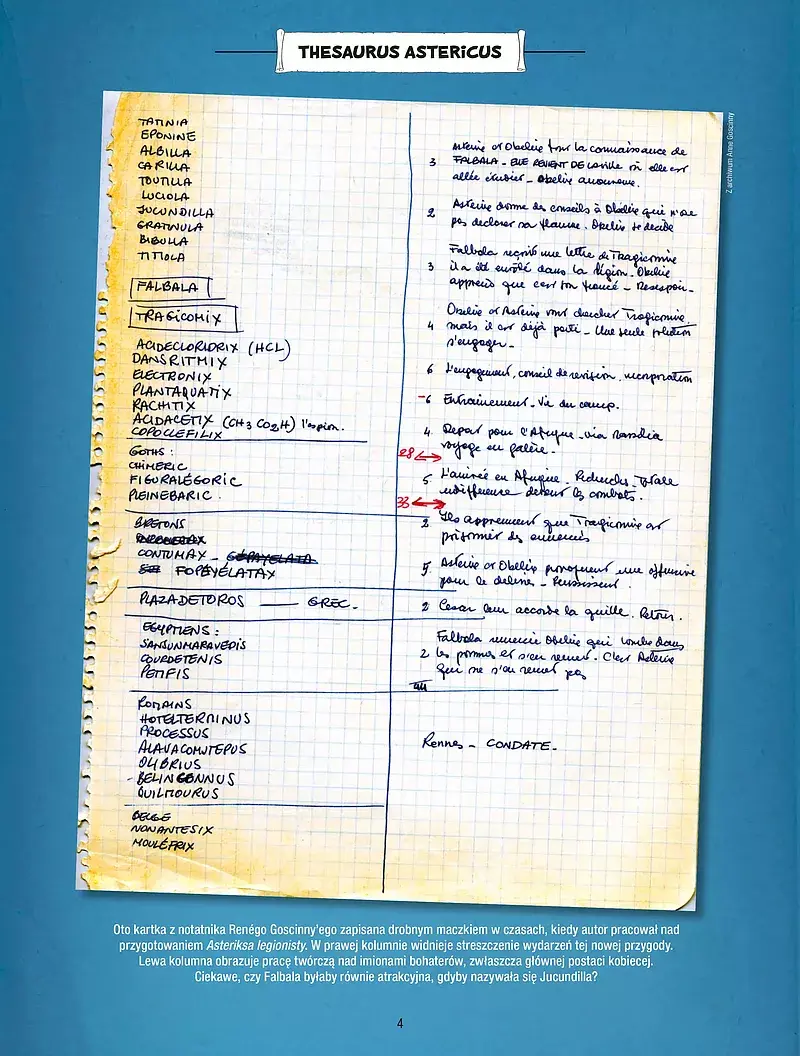 THESAURUS ASTERICUS
Z archiwum Anne Goscinny
TATINIA
EPONINE
ALBILLA
CARILLA
TOUTILLA
LUCIOLA
JUCUNDILLA
GRATINULA
BIBULLA
TITIOLA
FALBALA
TRAGICOMIX
ACIDECLORIDRIX (HCL)
DANSRITMIX
ELECTRONIX
PLANTAQUATIX
RACHITIX
ACIDACETIX (CH3 CO2H) l'espion.
COPOCLEFILIX
GOTHS :
CHIMERIC
FIGURALÉGORIC
PLEINEBARIC.
BRETONS
CONTUMAX -
FOPEYÉLATAX
PLAZADETOROS — GREC.
EGYPTIENS :
SANSUNMARAVEDIS
COURDETENIS
PETIFIS
ROMAINS
HOTELTERMINUS
PROCESSUS
ALAVACOMJTEPUS
OLIBRIUS
- BELINGENNUS
QUILMOURUS
BELGE
NONANTESIX
MOULÉFRIX
Asterix et Obelix font la connaissance de
3 FALBALA - ELLE REVIENT DE LA ville où elle est
allée étudier - Obelix amoureux.
Asterix donne des conseils à Obelix qui n'ose
2 pas declarer sa flamme. Obelix se decide
Falbala reçoit une lettre de Tragicomix
3 il a été enrôlé dans la légion. Obelix
apprend que c'est son fiancé - Desespoir.
Obelix et Asterix vont chercher Tragicomix
4 mais il est déjà parti - Une seule solution
s'engager.
6 L'engagement, conseil de revision, incorporation
6 Entrainement - Vie du camp.
4 Depart pour l'Afrique - via Massilia
voyage en galère.
28
5 L'arrivée en Afrique - totale
indifference devant les combats.
33
2 Ils apprennent que Tragicomix est
prisonnier des ennemis
5 Asterix et Obelix provoquent une offensive
pour le delivrer - Reussissent.
2 Cesar leur accorde la quille. Retour.
Falbala remercie Obelix qui tombe dans
2 les pommes et s'en remet. C'est Asterix
qui ne s'en remet pas
44
Rennes - CONDATE -
Oto kartka z notatnika Renégo Goscinny'ego zapisana drobnym maczkiem w czasach, kiedy autor pracował nad
przygotowaniem Asteriksa legionisty. W prawej kolumnie widnieje streszczenie wydarzeń tej nowej przygody.
Lewa kolumna obrazuje pracę twórczą nad imionami bohaterów, zwłaszcza głównej postaci kobiecej.
Ciekawe, czy Falbala byłaby równie atrakcyjna, gdyby nazywała się Jucundilla?
4